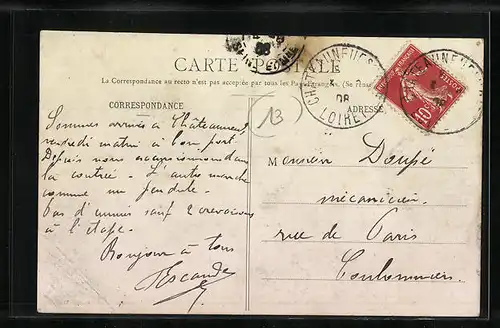 CARTE POSTALE
La Correspondance au recto n'est pas acceptée par tous les Pays Etrangers. (Se rens
CORRESPONDANCE
ADRESSE
13
CHATEAUNEUF S
08
LOIRET
10
Sommes arrivés à Châteauneuf
vendredi matin à bon port.
Depuis nous excursionnons dans
la contrée. L'auto marche
comme un pendule.
pas d'ennuis sauf 2 crevaisons
à l'étape.
Bonjour à tous
Escande
Monsieur Doupé
mécanicien
rue de Paris
Coulommiers